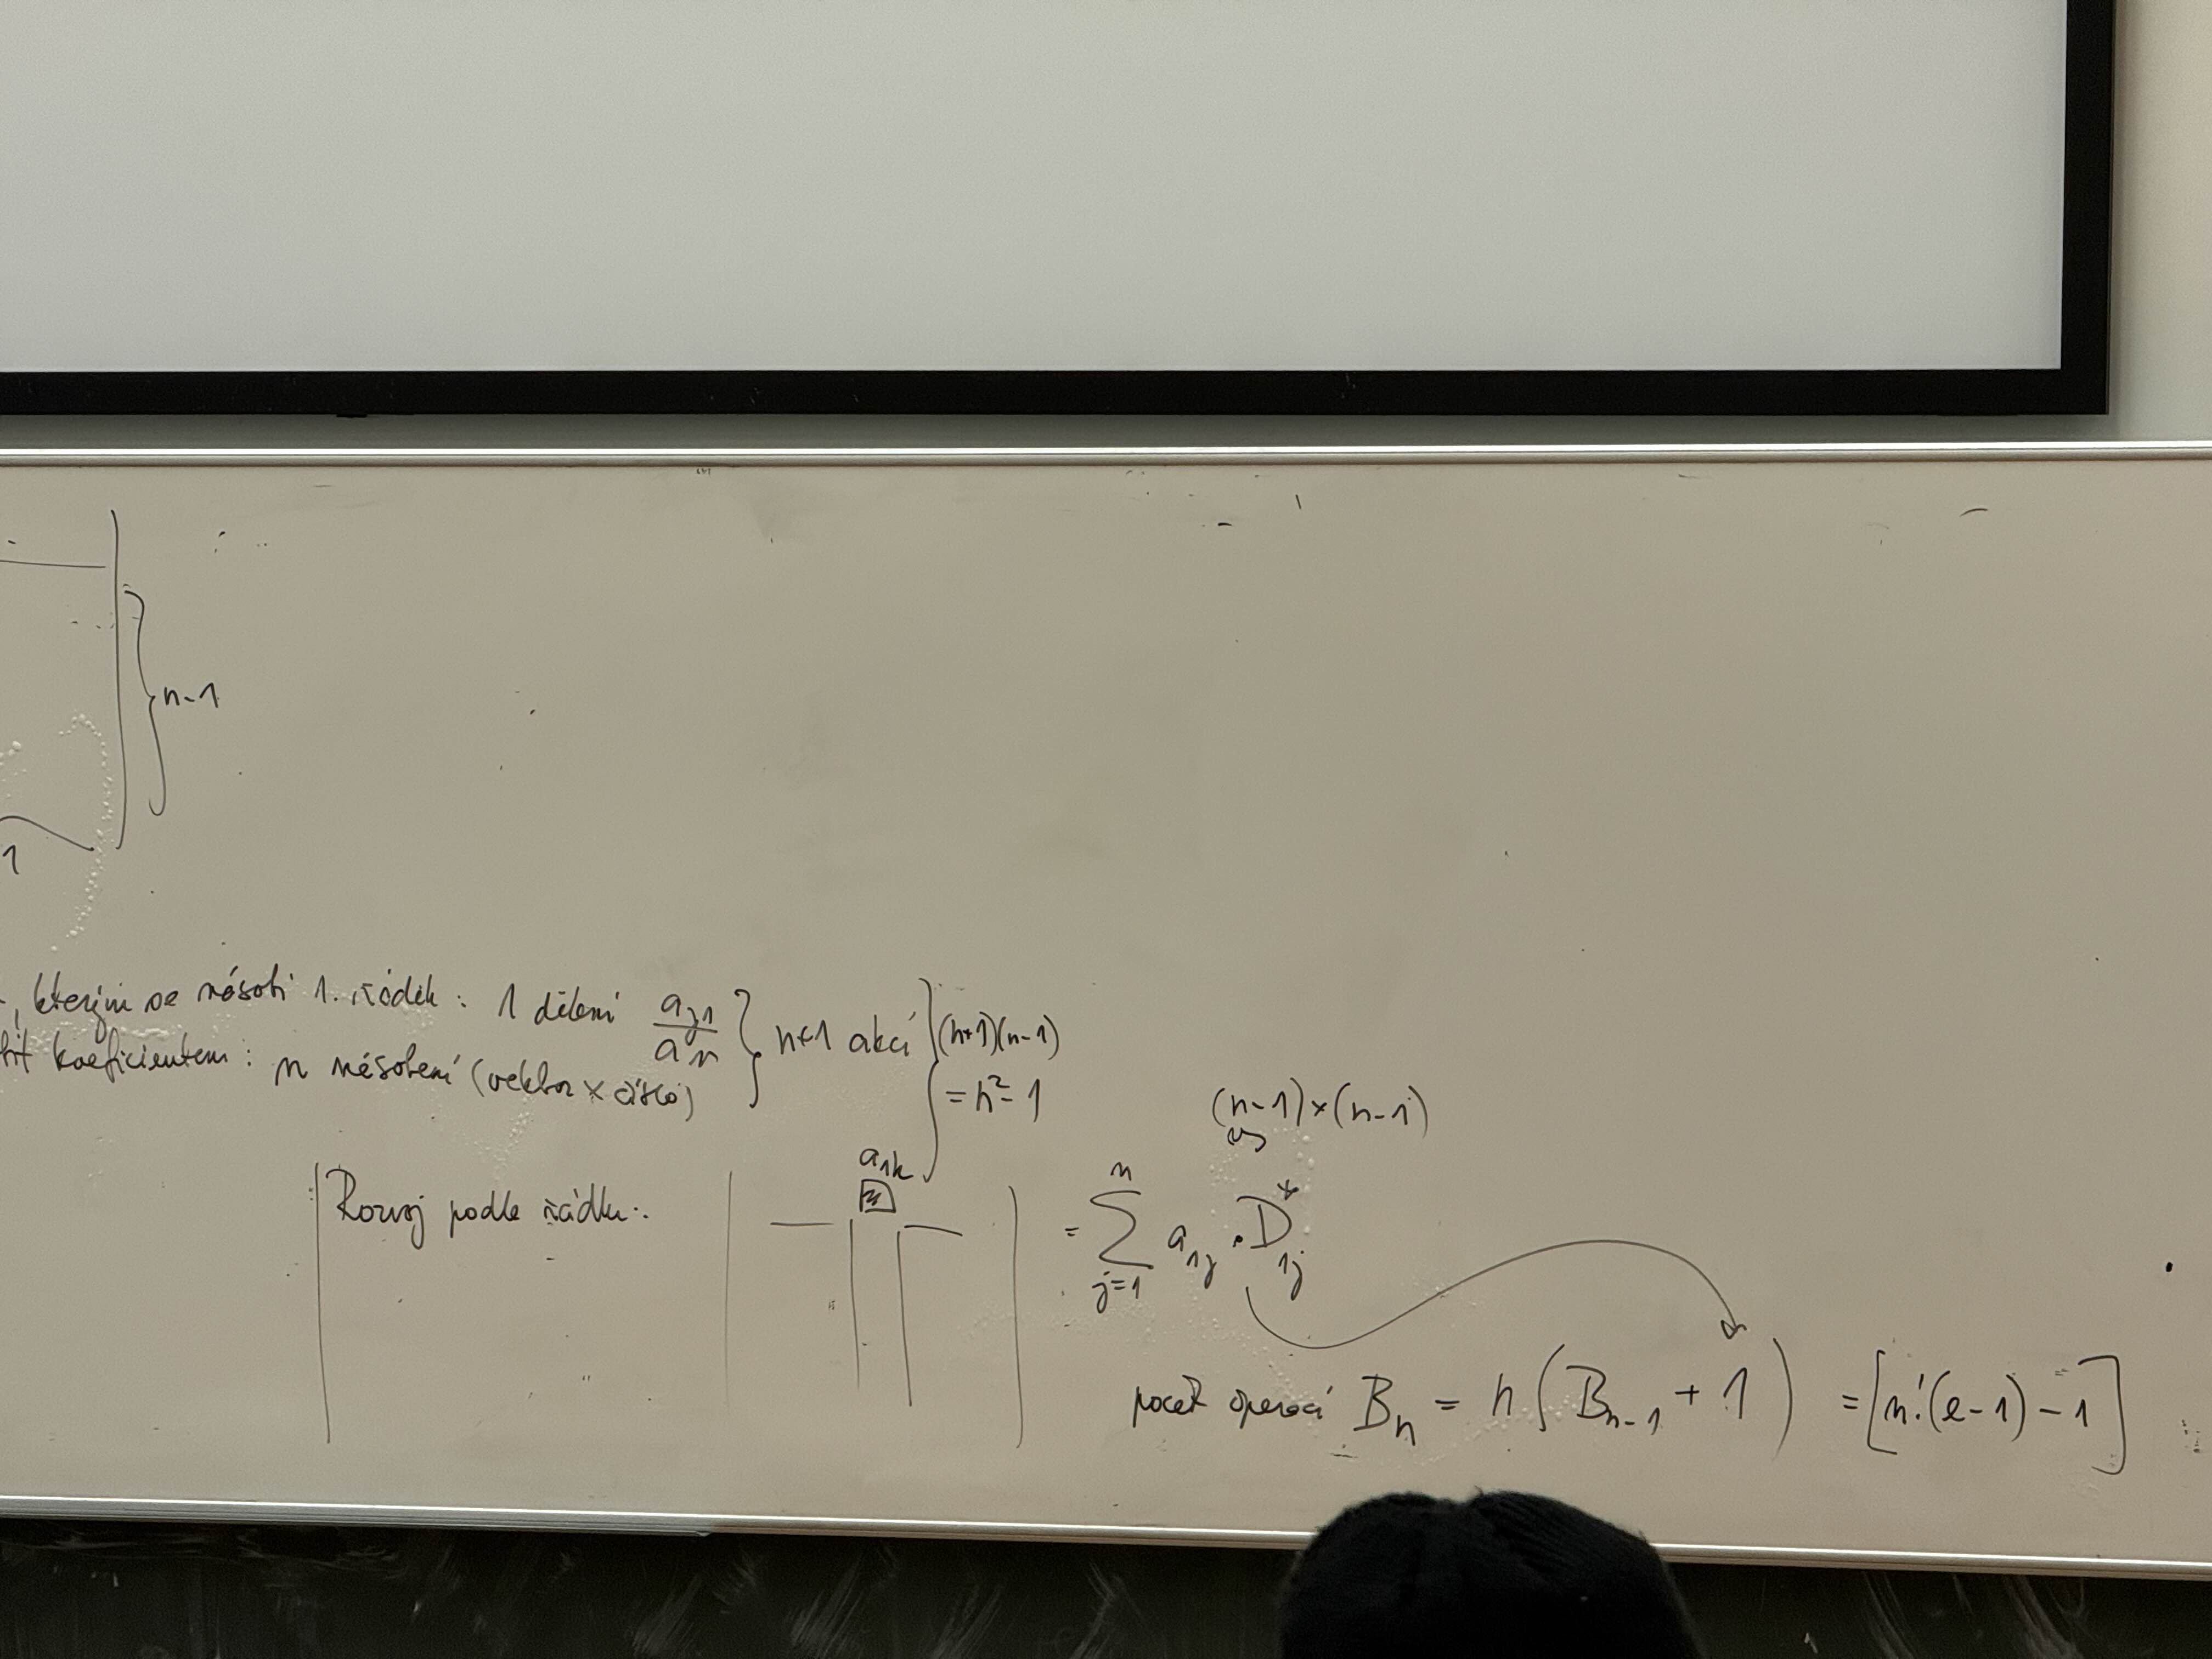 n-1
1
, kterým se násobí 1. řádek : 1 dělení a_{j1}/a_{11} } n+1 akcí } (n+1)(n-1)
koeficientem : n násobení (vektor × číslo) = n²-1
(n-1)×(n-1)
Rozvoj podle řádku: a_{1k} = ∑_{j=1}^{n} a_{1j} · D*_{1j}
počet operací B_n = n (B_{n-1} + 1) = [n!(e-1) - 1]